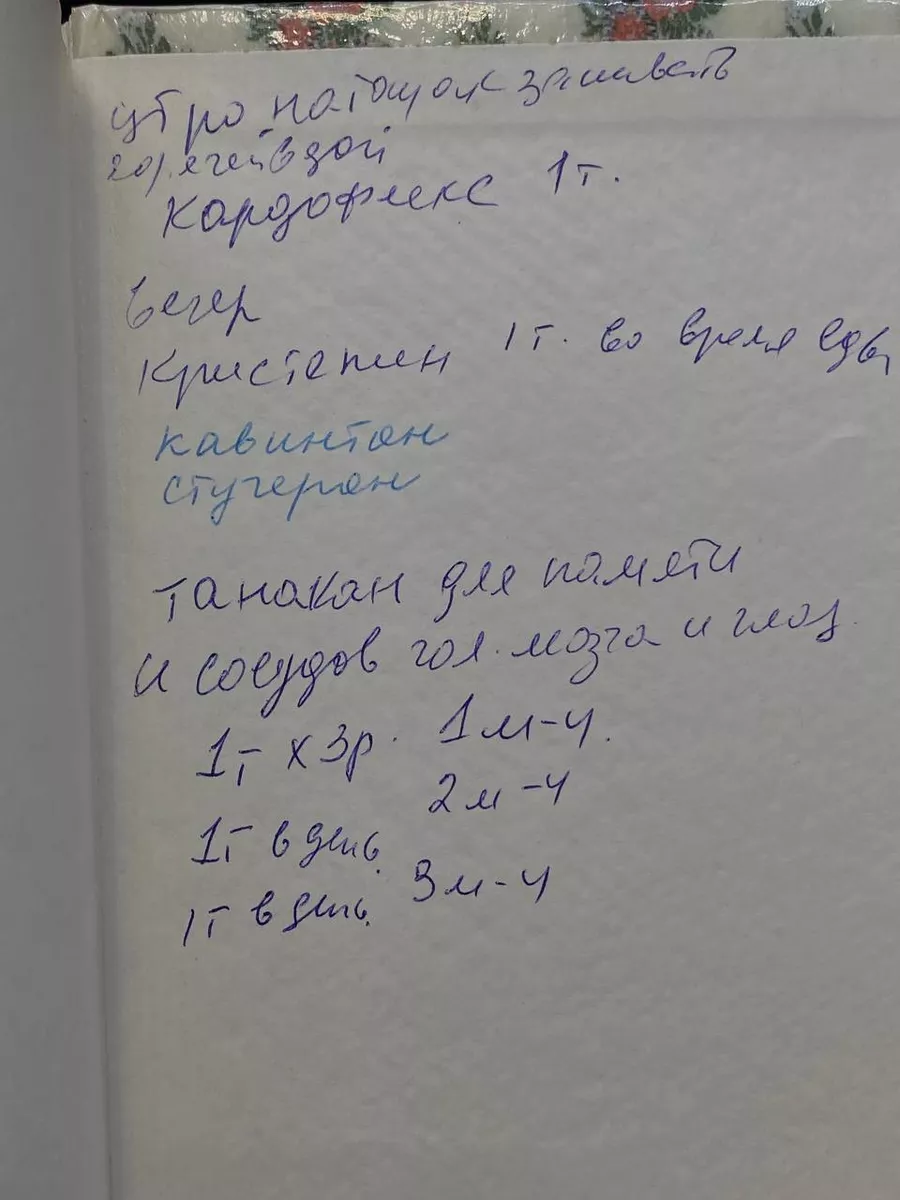 утро натощак запивать
горячей водой
Кардофлекс 1т.
вечер
Кристепин 1т. во время еды
кавинтон
стугерон
танакан для памяти
и сосудов гол. мозга и глаз.
1т х 3р. 1м-ц.
2м-ц
1т в день
1т в день. 3м-ц